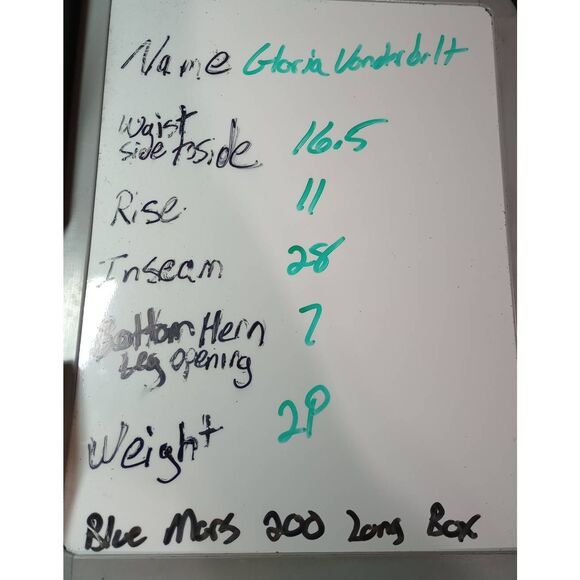 Name Gloria Vanderbilt
Waist
side to side 16.5
Rise 11
Inseam 28
Bottom Hem 7
Leg opening
Weight 2P
Blue Mars 200 Long Box